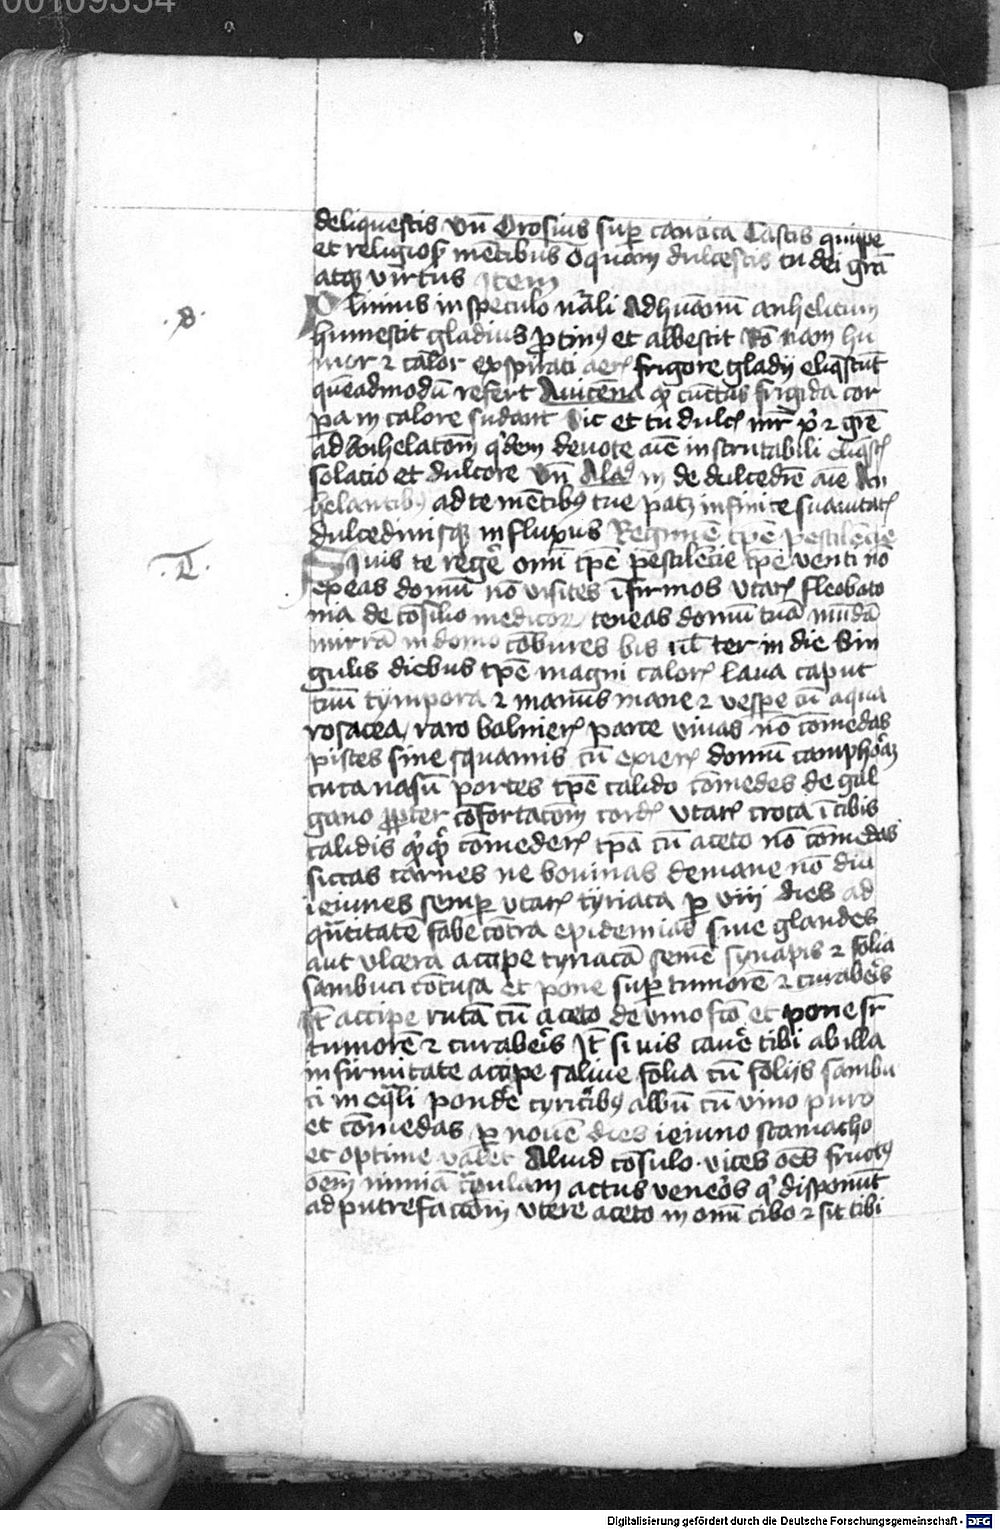 00109354
deliquestis vn̄ Orosius suꝑ cantica Castis quippe
et religiosꝭ mētibus O quam dulcescis tu dei grā
atqꝫ virtus Item
Plinius in speculo nāli Ad huānū anhelitum
.8.
humescit gladius ꝓtinꝰ et albescit Rō nam hu
mor ⁊ calor exspirati aerꝭ frigore gladij eliqscūt
queadmodū refert Auicēna qͥ cuncta frigida cor
pa in calore sudant Sic et tu dulcꝭ
ad anhelatōm qͥdem deuote aīe inscrutabili
solacio et dulcore vn̄ in de dulcedīe aīe An
helantibꝰ ad te mētibꝰ tue infinite suauitatꝭ
dulcedinisqꝫ influxus Regimē tꝑe pestilēcie
.T.
Si uis te regē om̄i tꝑe pestilēcie tꝑe venti nō
exeas domū nō visites īfirmos vtarꝭ fleobato
mia de cōsilio medicorꝫ teneas domū tuā mūdā
mirrā in domo cōbures bis ul̄ ter in die Sin
gulis diebus tꝑe magni calorꝭ laua caput
tuū tympora ⁊ manus mane ⁊ vespe cū aqua
rosacea raro balnierꝭ parce viuas nō cōmedas
pisces sine squamis cū exierꝭ domū camphorā
circa nasū portes tꝑe calido cōmedes de gal
gano ꝓpter cōfortacōm cordꝭ vtarꝭ croca ī cibis
calidis cōmederꝭ tp̄a cū aceto nō cōmedas
siccas carnes ne bouinas de mane nō diu
ieiunes semꝑ vtarꝭ tyriaca ꝑ viij dies ad
qūtitatē fabe cōtra epidemiā siue glandes
aut vlcera accipe tyriacā semē synapis ⁊ folia
sambuci cōtusa et pone suꝑ tumorē ⁊ curaberis
It̄ accipe rutā cū aceto de vino fcō et pone sr̄
tumorē ⁊ curaberis It̄ si uis cauē tibi ab illa
infirmitate accipe saluie folia cū folijs sambu
ci in eqͣli pondē albū cū vino puro
et cōmedas ꝑ nouē dies ieiuno stomacho
et optime valet Aliud cōsulo vites oēs fructꝰ
oēm nimiā crapulam actus venēos qͥ disponūt
ad putrefactōm vtere aceto in om̄i cibo ⁊ sit tibi
Digitalisierung gefördert durch die Deutsche Forschungsgemeinschaft - DFG